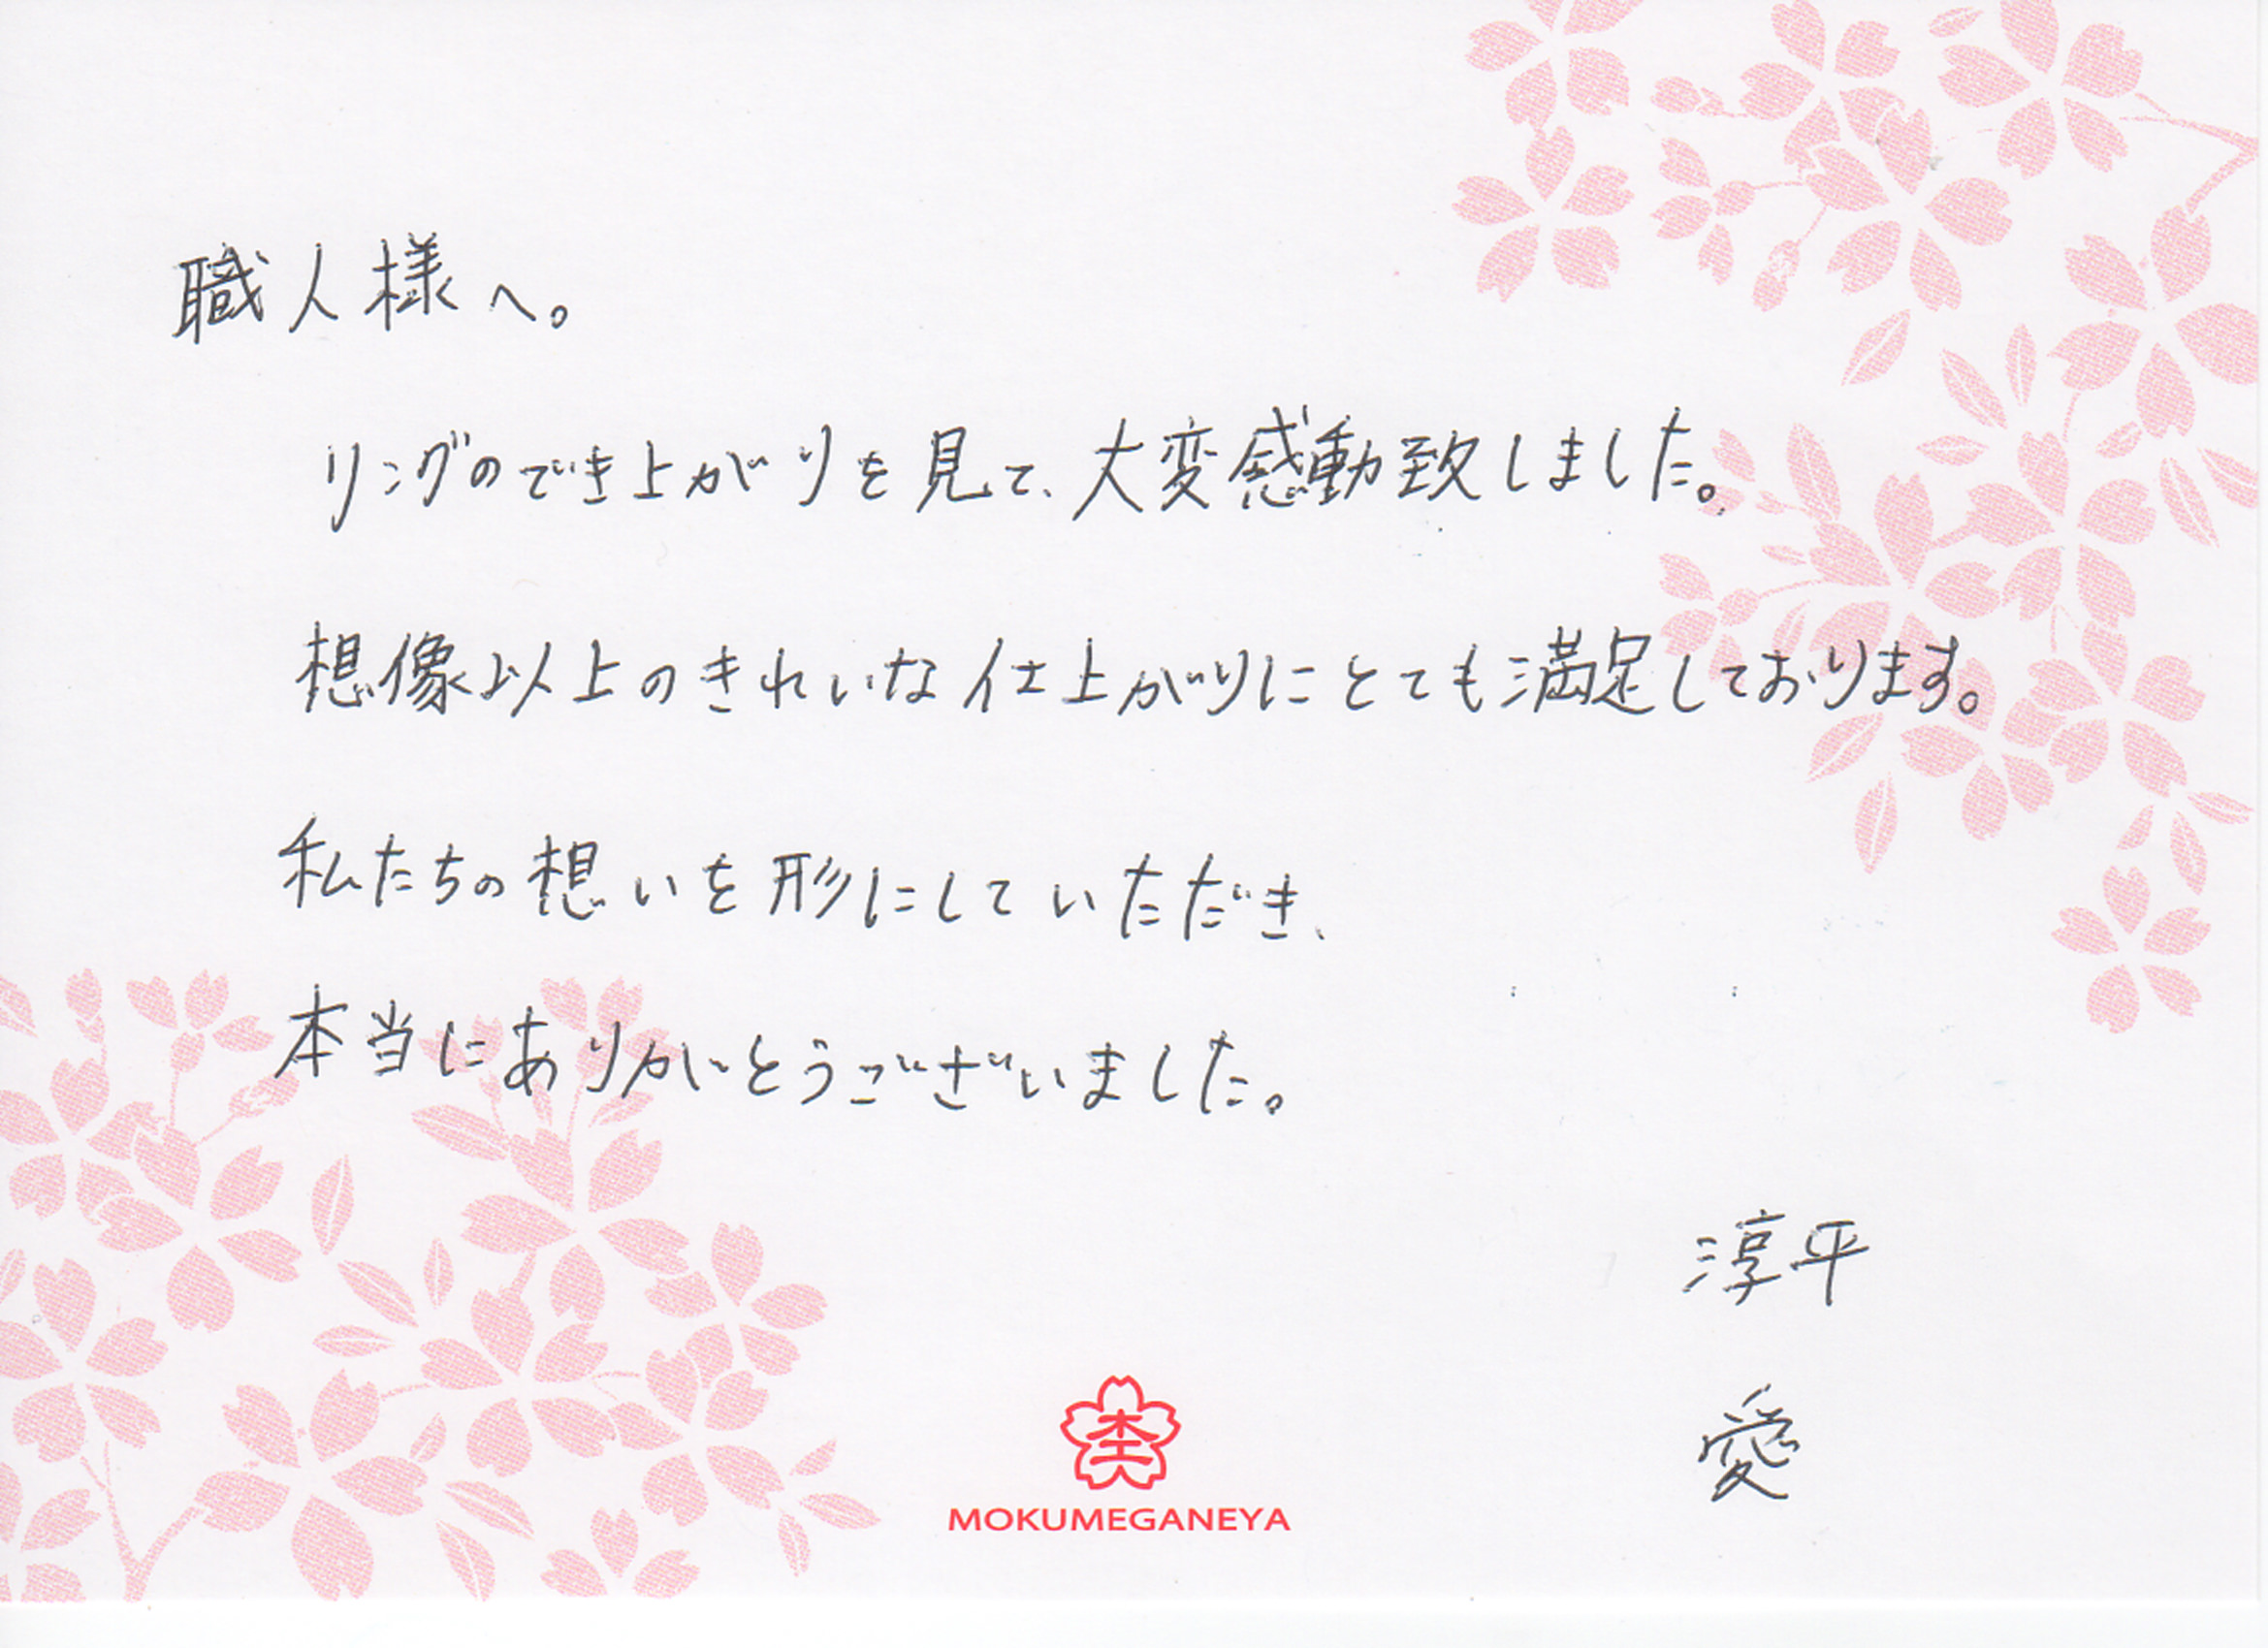 職人様へ。
リングのでき上がりを見て、大変感動致しました。
想像以上のきれいな仕上がりにとても満足しております。
私たちの想いを形にしていただき、
本当にありがとうございました。
淳平
愛
杢
MOKUMEGANEYA